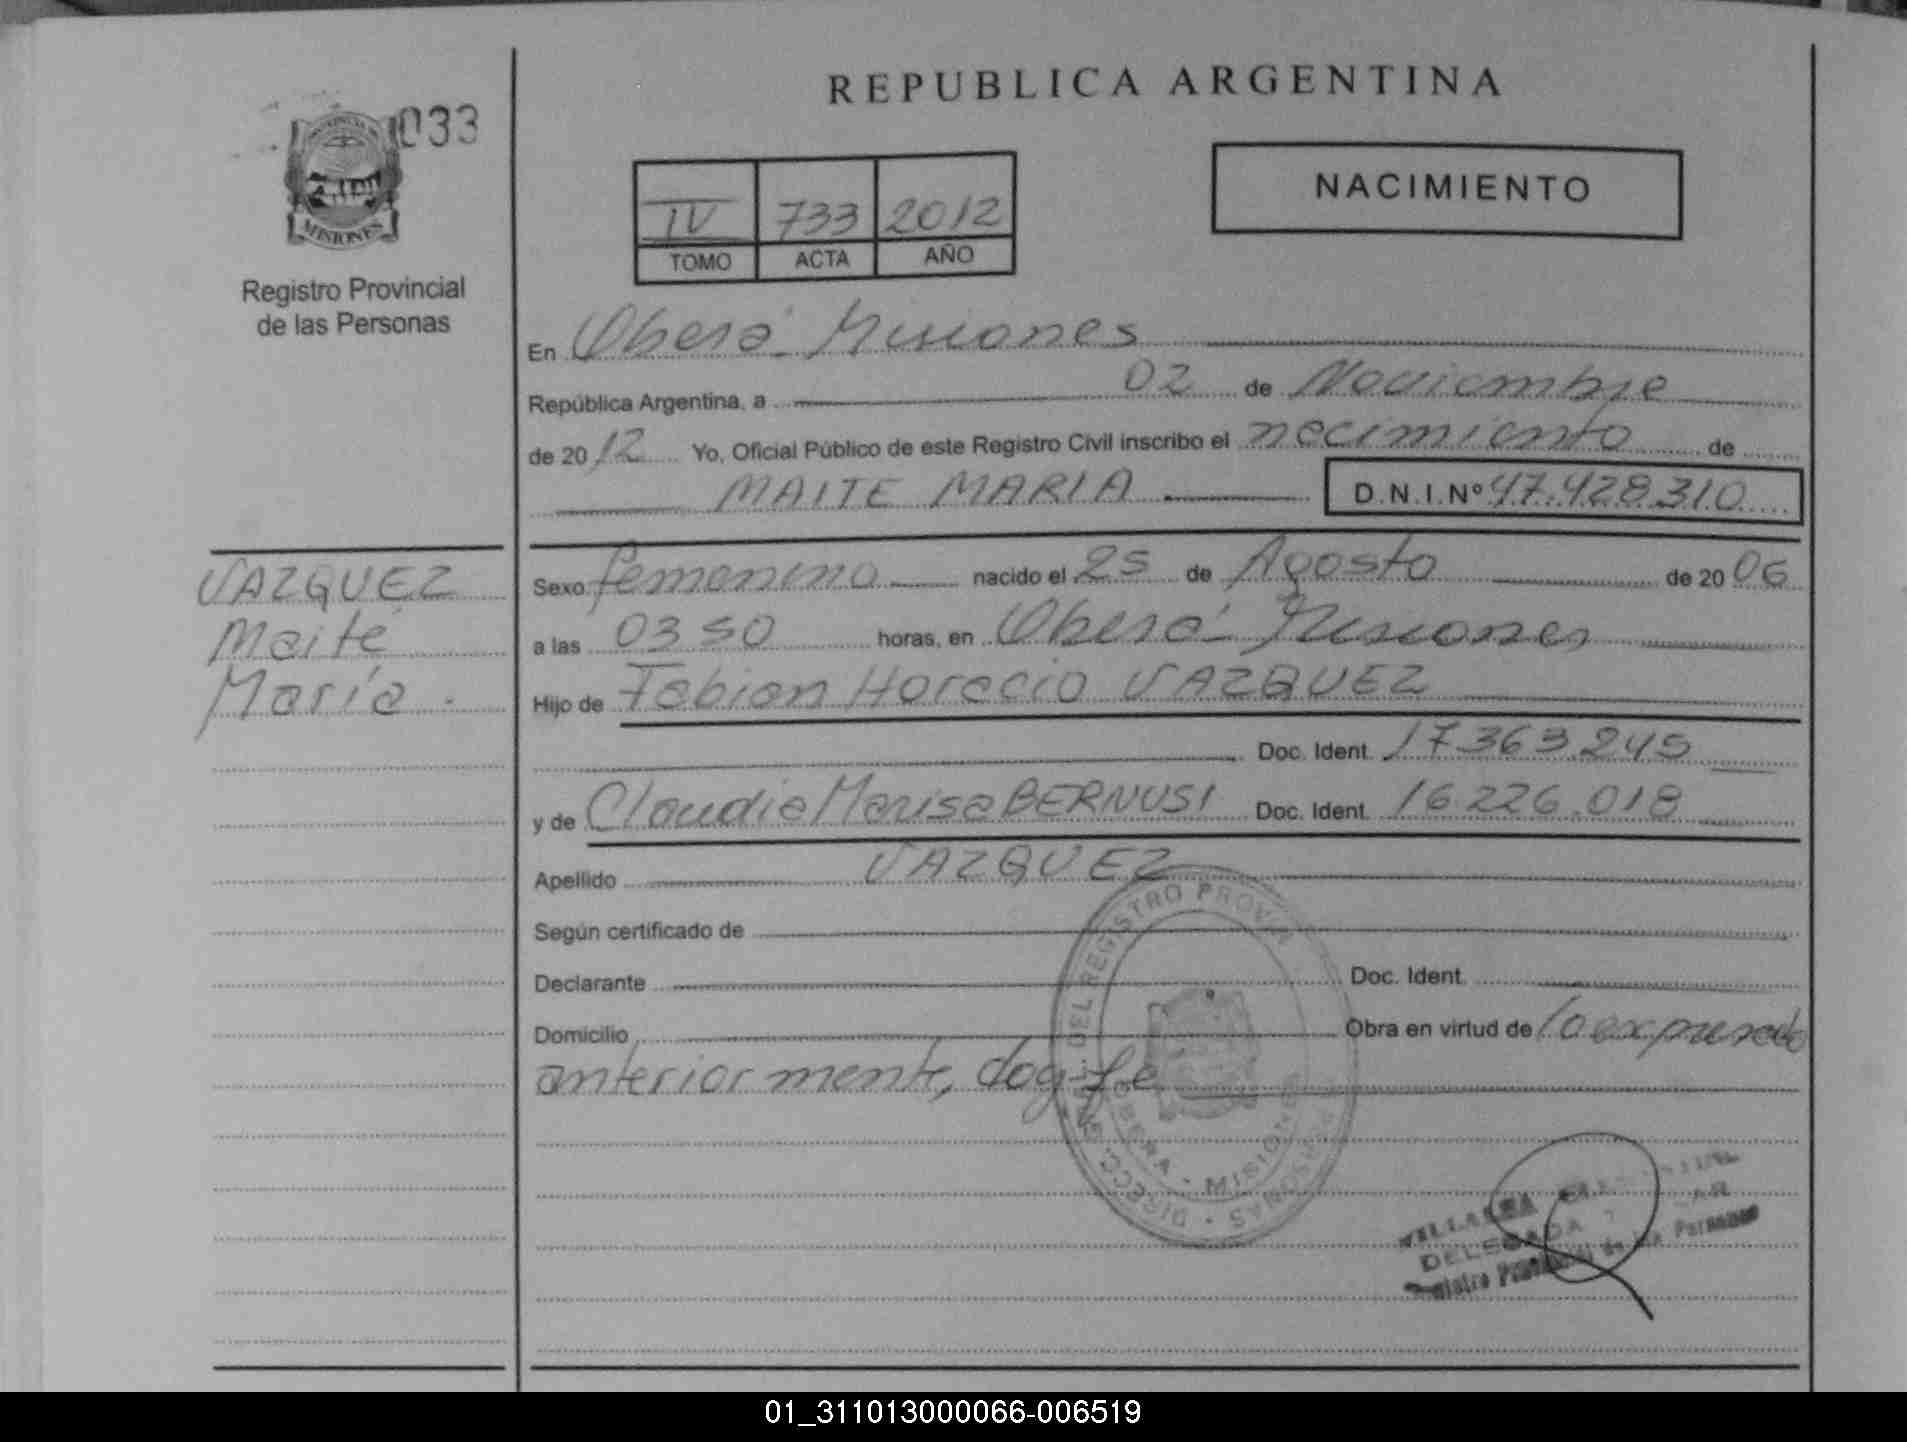 REPUBLICA ARGENTINA
033
MISIONES
Registro Provincial
de las Personas
NACIMIENTO
IV 733 2012
TOMO ACTA AÑO
En Oberá Misiones
República Argentina, a 02 de Noviembre
de 2012 Yo, Oficial Público de este Registro Civil inscribo el nacimiento de
MAITE MARIA D.N.I.Nº 47.428.310
VAZQUEZ
Maité
María.
Sexo femenino nacido el 25 de Agosto de 2006
a las 03 50 horas, en Oberá Misiones
Hijo de Fabian Horacio VAZQUEZ
Doc. Ident. 17363.245
y de Claudia Marisa BERNUSI Doc. Ident. 16.226.018
Apellido VAZQUEZ
Según certificado de
Declarante Doc. Ident.
Domicilio Obra en virtud de lo expresado
anteriormente, doy fe
DIRECC. DEL REGISTRO PROVIN PERSONAS
OBERA - MISIONES
VILLALBA
DELEGADA
Registro Provincial de las Personas
01_311013000066-006519